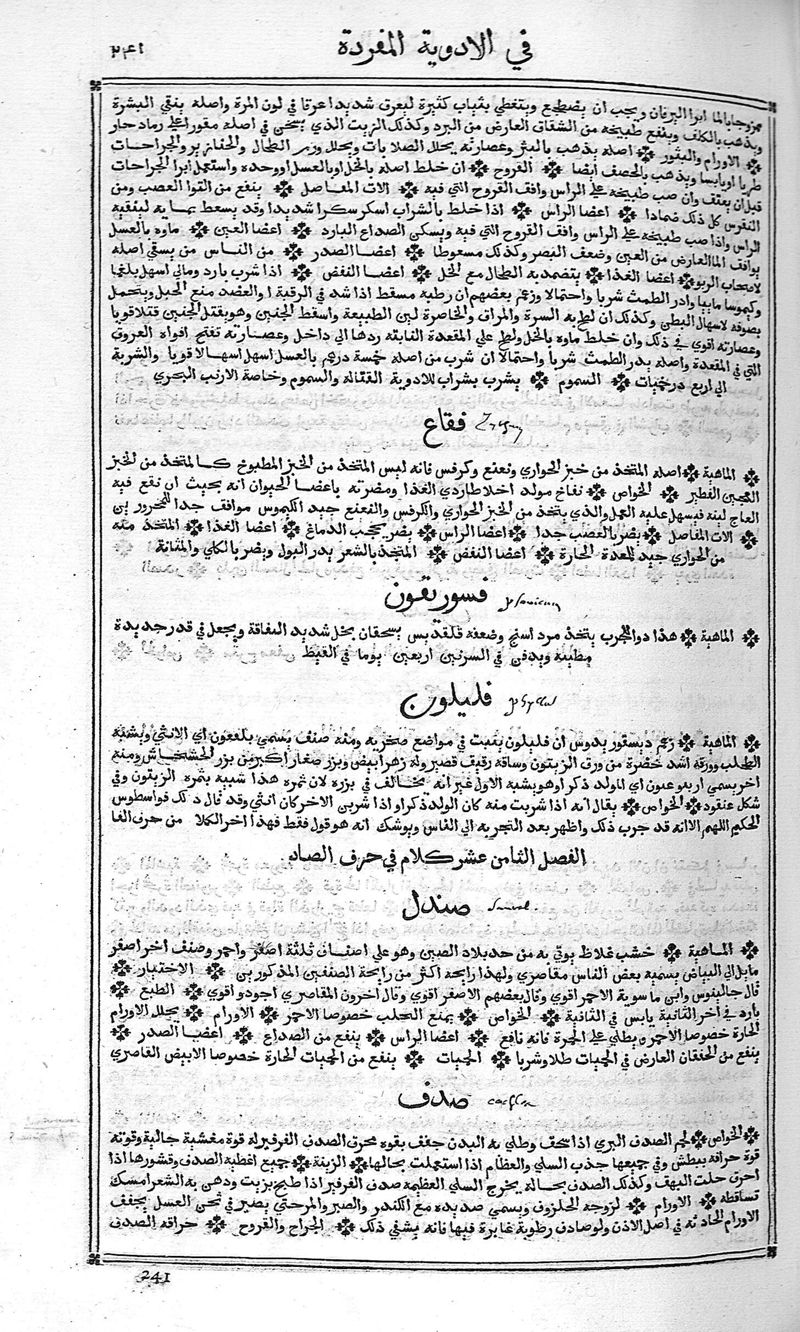 ٢٤١ في الادوية المفردة
ممزوجا بالما ابرا اليرقان ويجب ان يضطجع ويتغطي بثياب كثيرة ليعرق شديدا عرقا في لون المرة واصله ينقي البشرة
ويذهب بالكلف وينفع طبيخه من الشقاق العارض من البرد وكذلك الزيت الذي يسخن في اصله مقورا على رماد حار
الاورام والبثور اصله يذهب بالبثر وعصارته يحلل الصلابات ويحلل ورم الطحال والخنازير والجراحات
طريا او يابسا ويذهب بالحصف ايضا القروح ان خلط اصله بالخل او بالعسل او وحده واستعمل ابرا الجراحات
قبل ان يعتق وان صب طبيخه على الراس وافق القروح التي فيه الات المفاصل ينفع من التوا العصب ومن
النقرس كل ذلك ضمادا اعضا الراس اذا خلط بالشراب اسكر سكرا شديدا وقد يسعط بمايه لينقيه
الراس واذا صب طبيخه على الراس وافق القروح التي فيه ويسكن الصداع البارد اعضا العين ماوه بالعسل
يوافق الما العارض من العين وضعف البصر وكذلك مسعوطا اعضا الصدر من الناس من يسقي اصله
لاصحاب الربو اعضا الغذا يتضمد به الطحال مع الخل اعضا النفض اذا شرب بارد ومالي اسهل بلغما
وكيموسا ماييا وادر الطمث شربا واحتمالا وزعم بعضهم ان رطبه مسقط اذا شد في الرقبة او العضد منع الحبل ويتحمل
بصوفه لاسهال البطن وكذلك ان لطخ به السرة والمراق والخاصرة لين الطبيعة واسقط الجنين وهو يقتل الجنين قتلا قويا
وعصارته اقوي في ذلك وان خلط ماوه بالخل ولطخ علي المقعدة الناتيه ردها الي داخل وعصارته تفتح افواه العروق
التي في المقعدة واصله يدر الطمث شربا واحتمالا ان شرب من اصله خمسة درهم بالعسل اسهل اسهالا قويا والشربة
الي اربع درخميات السموم يشرب بشراب للادوية القتالة والسموم وخاصة الارنب البحري
فقاع
الماهية اصله المتخذ من خبز الحواري ونعنع وكرفس فانه ليس المتخذ من الخبز المطبوخ كالمتخذ من الخبز
العجين الفطير الخواص نفاخ مولد اخلاطا ردي الغذا ومضرته باعضا الحيوان انه بحيث ان نقع فيه
العاج لينه فيسهل عليه العمل والذي يتخذ من الخبز الحواري والكرفس والنعنع جيد الكيموس موافق جدا للمحرورين
الات المفاصل يضر بالعصب جدا اعضا الراس يضر بحجب الدماغ اعضا الغذا المتخذ منه
من الحواري جيد للمعدة الحارة اعضا النفض المتخذ بالشعر يدر البول ويضر بالكلي والمثانة
فسوريقون
الماهية هذا دوا للجرب يتخذ مرد اسنج وضعفه قلقديس يسحقان بخل شديد الثقافة ويجعل في قدر جديدة
مطينه ويدفن في السرنين اربعين يوما في القيظ
فليلون
الماهية زعم ديسقوريدوس ان فليلون ينبت في مواضع صخريه ومنه صنف يسمي بلفعون اي الانثي ويشبه
الطحلب وورقه اشد خضرة من ورق الزيتون وساقه رقيق قصير وله زهر ابيض وبزر صغار اكبر من بزر الخشخاش ومنه
اخر يسمي اربوعيون اي المولد ذكرا وهو يشبه الاول غير انه يخالف في بزره لان ثمره هذا شبيه بثمره الزيتون وفي
شكل عنقود الخواص يقال انه اذا شربت منه كان الولد ذكرا واذا شربن الاخر كان انثي وقد قال ذلك قواسطوس
الحكيم اللهم الا انه قد جرب ذلك واظهر بعد التجربه الي الناس ويوشك انه هو قول فقط فهذا اخر الكلا من حرف الفا
الفصل الثامن عشر كلام في حرف الصاد
صندل
الماهية خشب غلاظ يوتي به من حد بلاد الصين وهو علي اصناف ثلثة اصفر واحمر وصنف اخر اصفر
مايل الي البياض يسميه بعض الناس مقاصري ولهذا رايحة اكثر من رايحة الصنفين المذكورين الاختيار
قال جالينوس وابن ماسوية الاحمر اقوي وقال بعضهم الاصفر اقوي وقال اخرون المقاصري اجود واقوي الطبع
بارد في اخر الثانية يابس في الثانية الخواص يمنع التحلب خصوصا الاحمر الاورام يحلل الاورام
الحارة خصوصا الاحمر ان يطلي على الحمرة فانه نافع اعضا الراس ينفع من الصداع اعضا الصدر
ينفع من الخفقان العارض في الحميات طلا وشربا الحميات ينفع من الحميات الحارة خصوصا الابيض القاصري
صدف
الخواص لحم الصدف البري اذا سحق وطلي به البدن جفف بقوه محرق الصدف الفرفير له قوة مغشية جالية وقوته
قوة حرافه ببطش وفي جميعها جذب السلي والعظام اذا استعملت بحالها الزينة جميع اغطية الصدف وقشورها اذا
احرق حلت البهق وكذلك الصدف بحالة يخرج السلي العظيمه صدف الفرفير اذا طبخ بزيت ودهن به الشعر امسك
تساقطه الاورام لزوجه الحلزوف ويسمي صديده مع الكندر والصبر والمر حتي يصير في ثخن العسل يجفف
الاورام الحادثه في اصل الاذن ولو صادف رطوبة غايرة فيها فانه يشفي ذلك الجراح والقروح حراقه الصدف
241